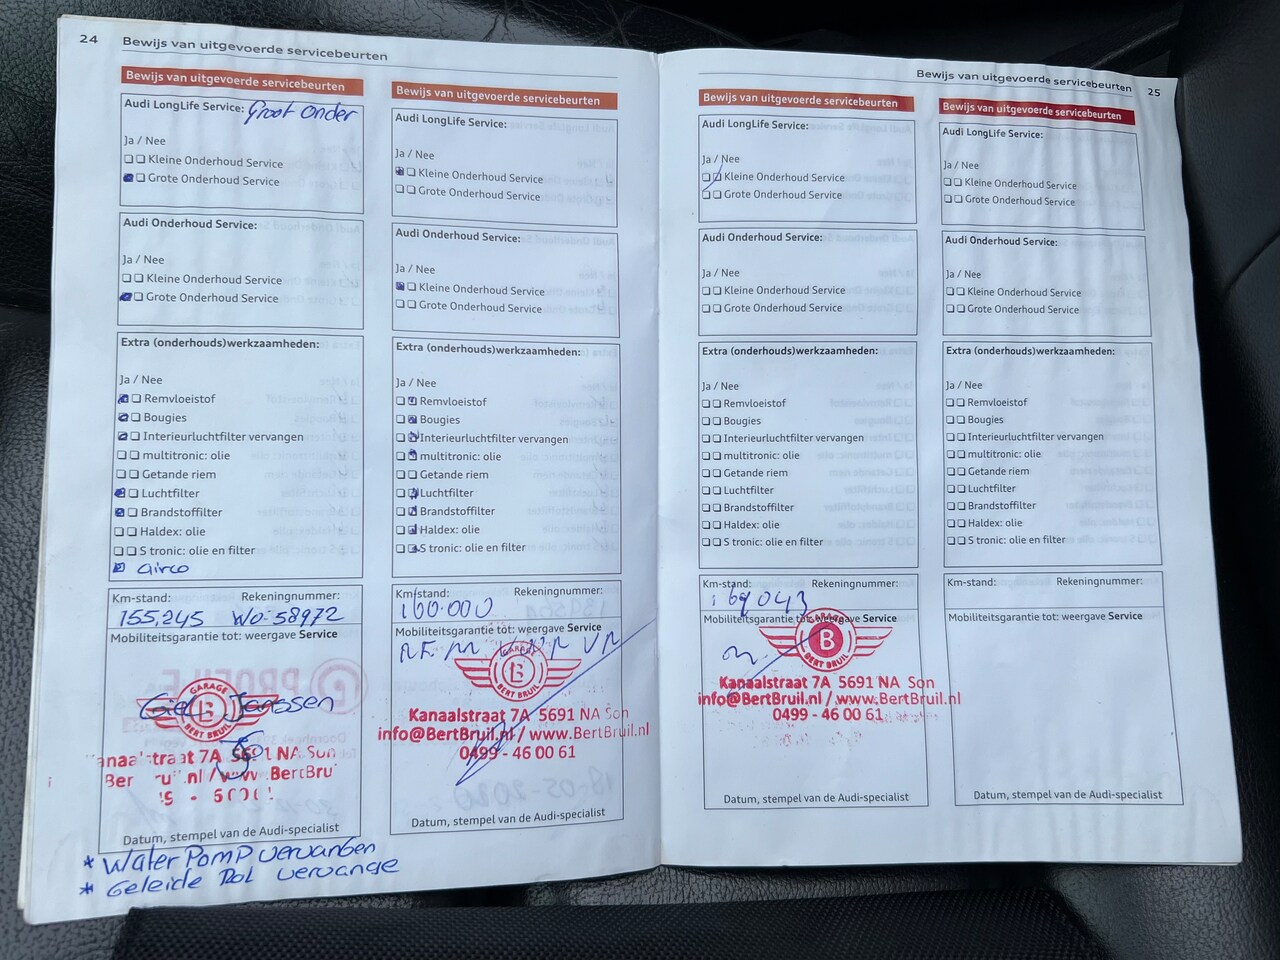 24 Bewijs van uitgevoerde servicebeurten
Bewijs van uitgevoerde servicebeurten
Audi LongLife Service: Groot onder
Ja / Nee
Kleine Onderhoud Service
Grote Onderhoud Service
Audi Onderhoud Service:
Ja / Nee
Kleine Onderhoud Service
Grote Onderhoud Service
Extra (onderhouds)werkzaamheden:
Ja / Nee
Remvloeistof
Bougies
Interieurluchtfilter vervangen
multitronic: olie
Getande riem
Luchtfilter
Brandstoffilter
Haldex: olie
S tronic: olie en filter
airco
Km-stand: Rekeningnummer:
155,245 WO-58972
Mobiliteitsgarantie tot: weergave Service
GARAGE
B
Janssen
BERT BRUIL
Kanaalstraat 7A 5691 NA Son
Datum, stempel van de Audi-specialist
* Water Pomp vervangen
* Geleide Rol vervange
Bewijs van uitgevoerde servicebeurten
Audi LongLife Service:
Ja / Nee
Kleine Onderhoud Service
Grote Onderhoud Service
Audi Onderhoud Service:
Ja / Nee
Kleine Onderhoud Service
Grote Onderhoud Service
Extra (onderhouds)werkzaamheden:
Ja / Nee
Remvloeistof
Bougies
Interieurluchtfilter vervangen
multitronic: olie
Getande riem
Luchtfilter
Brandstoffilter
Haldex: olie
S tronic: olie en filter
Km-stand: Rekeningnummer:
160.000
Mobiliteitsgarantie tot: weergave Service
REM VOOR
GARAGE
B
BERT BRUIL
Kanaalstraat 7A 5691 NA Son
info@BertBruil.nl / www.BertBruil.nl
0499 - 46 00 61
Datum, stempel van de Audi-specialist
Bewijs van uitgevoerde servicebeurten 25
Bewijs van uitgevoerde servicebeurten
Audi LongLife Service:
Ja / Nee
Kleine Onderhoud Service
Grote Onderhoud Service
Audi Onderhoud Service:
Ja / Nee
Kleine Onderhoud Service
Grote Onderhoud Service
Extra (onderhouds)werkzaamheden:
Ja / Nee
Remvloeistof
Bougies
Interieurluchtfilter vervangen
multitronic: olie
Getande riem
Luchtfilter
Brandstoffilter
Haldex: olie
S tronic: olie en filter
Km-stand: Rekeningnummer:
169043
Mobiliteitsgarantie tot: weergave Service
GARAGE
B
BERT BRUIL
Kanaalstraat 7A 5691 NA Son
info@BertBruil.nl / www.BertBruil.nl
0499 - 46 00 61
Datum, stempel van de Audi-specialist
Bewijs van uitgevoerde servicebeurten
Audi LongLife Service:
Ja / Nee
Kleine Onderhoud Service
Grote Onderhoud Service
Audi Onderhoud Service:
Ja / Nee
Kleine Onderhoud Service
Grote Onderhoud Service
Extra (onderhouds)werkzaamheden:
Ja / Nee
Remvloeistof
Bougies
Interieurluchtfilter vervangen
multitronic: olie
Getande riem
Luchtfilter
Brandstoffilter
Haldex: olie
S tronic: olie en filter
Km-stand: Rekeningnummer:
Mobiliteitsgarantie tot: weergave Service
Datum, stempel van de Audi-specialist